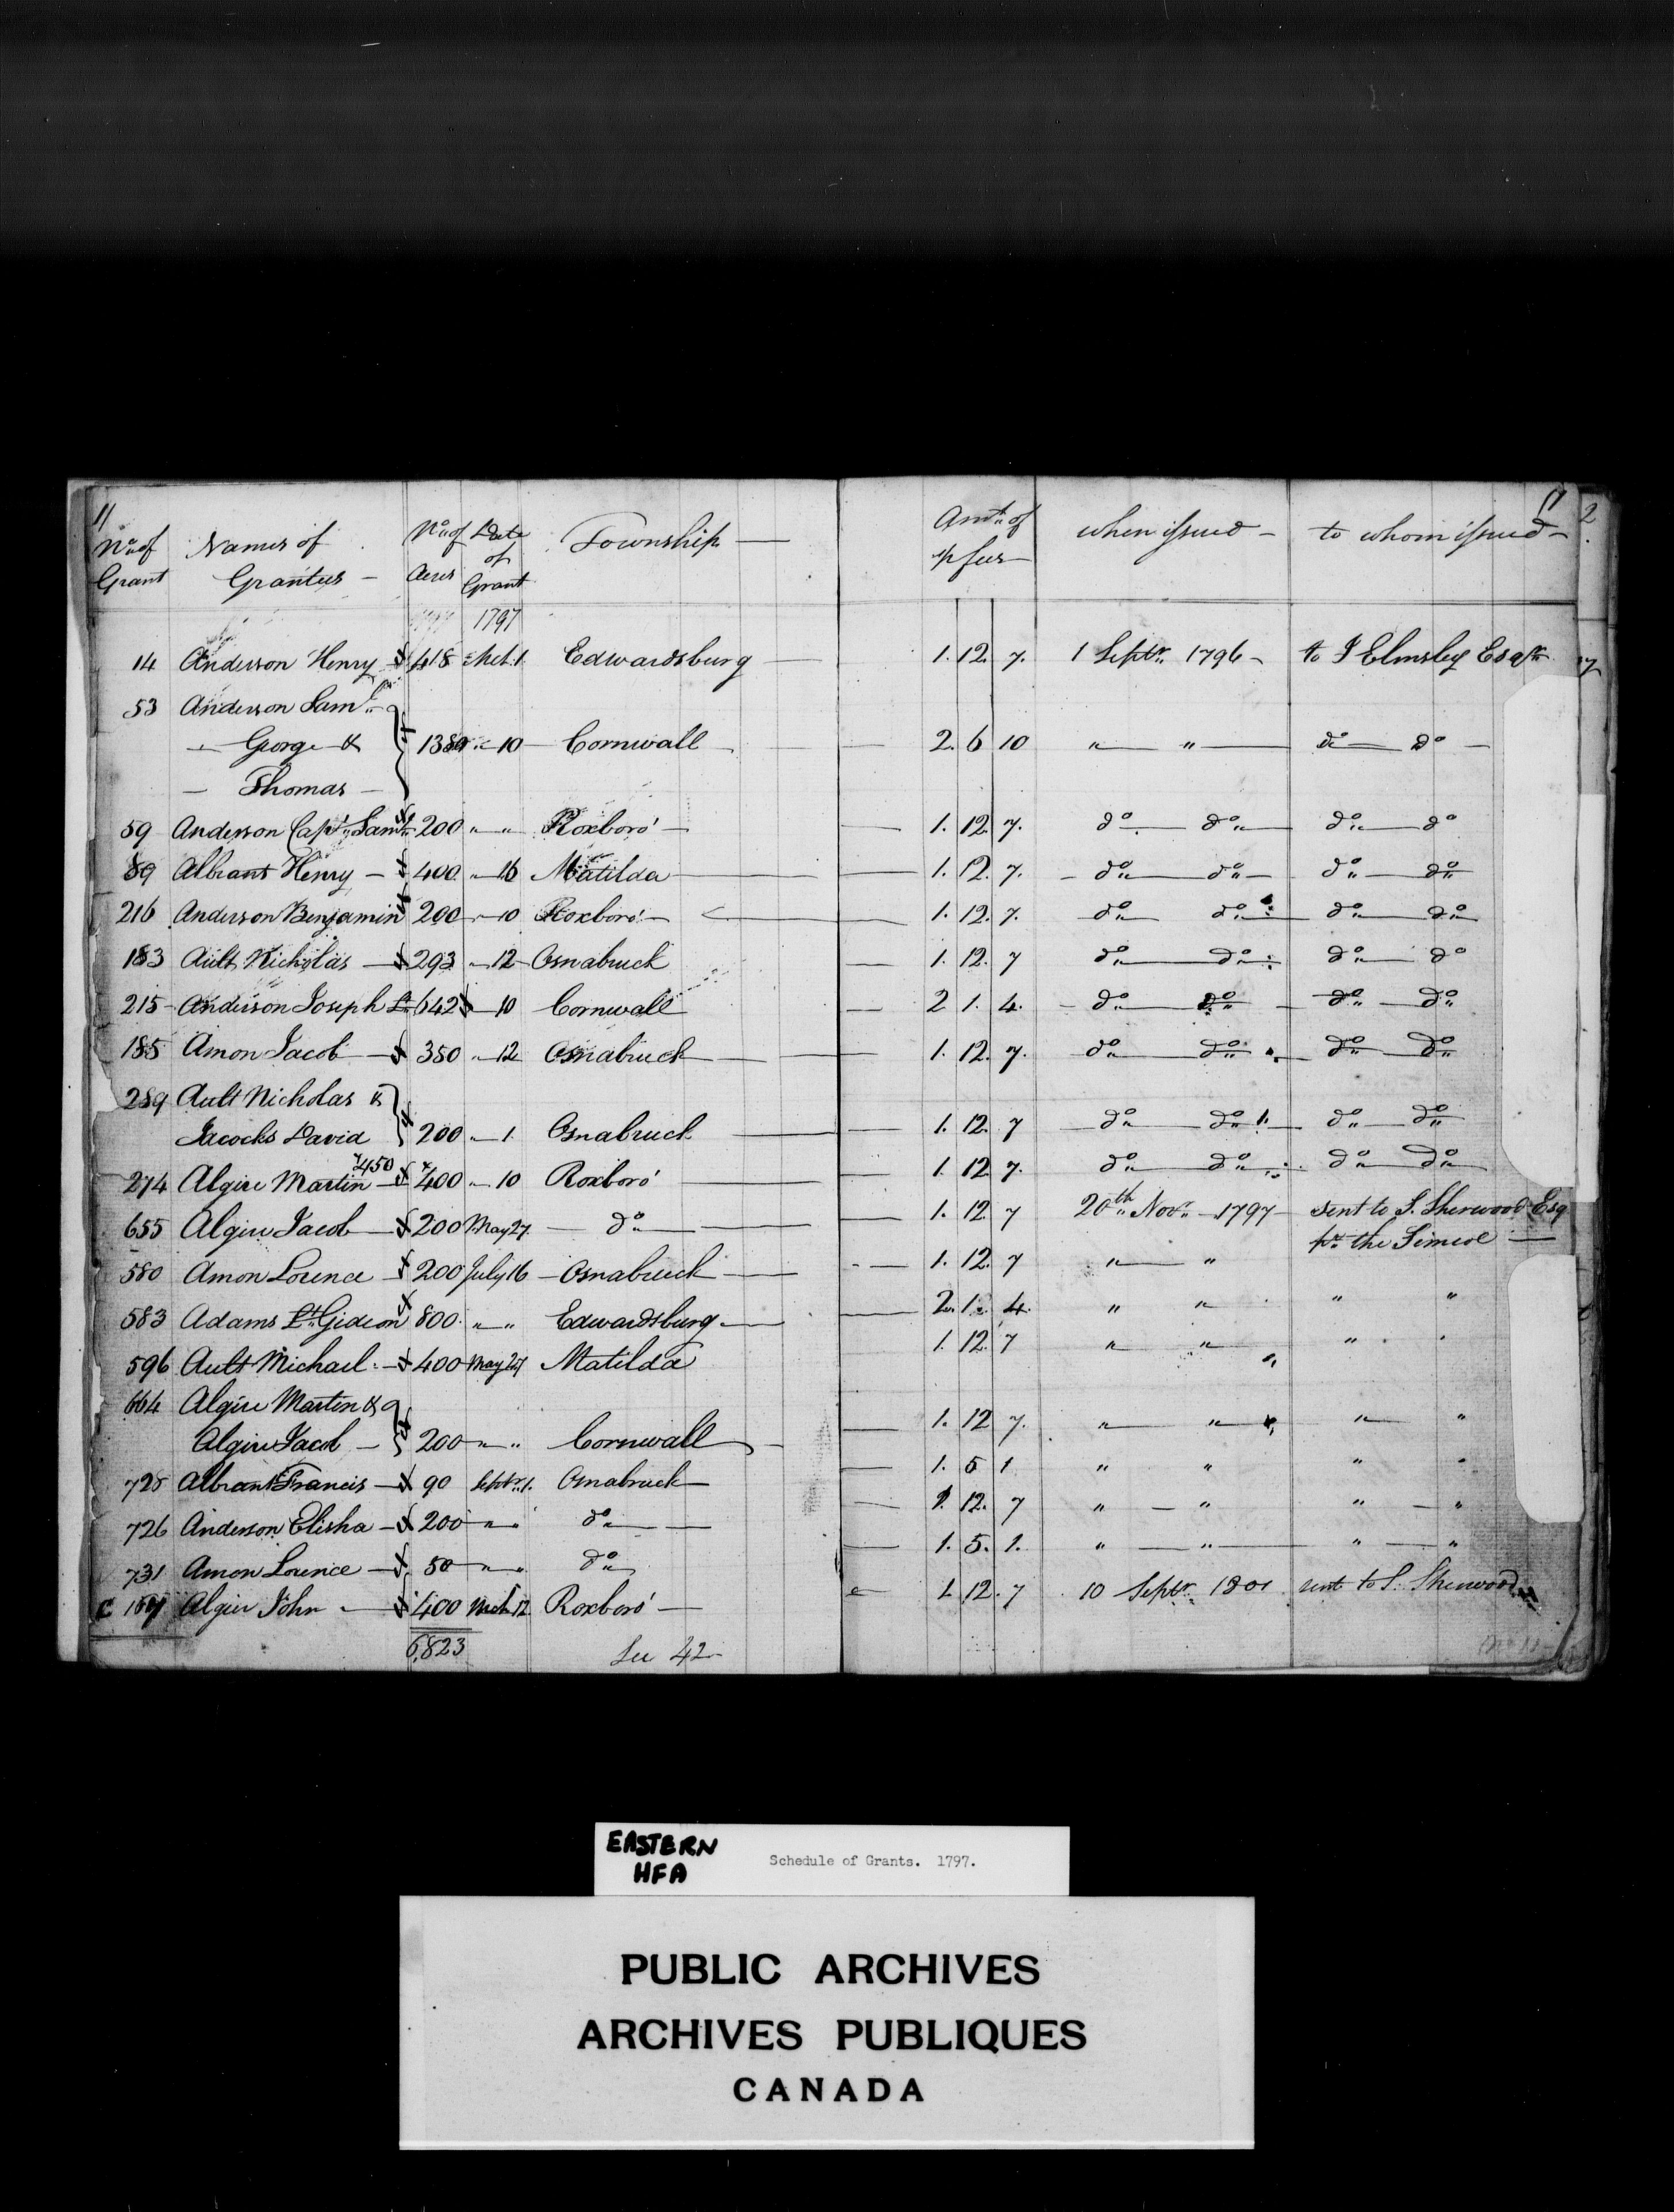 11 11 2
No. of Grant Names of Grantees - No. of Acres Date of Grant Township — Amt. of p fees when issued - to whom issued -
1797
14 Anderson Henry 418 Mch. 1 Edwardsburg 1. 12. 7. 1 Septr. 1796 - to J Elmsley Esqr.
53 Anderson Saml.
" George & 1380 " 10 Cornwall 2. 6 10 " " do do
— Thomas -
59 Anderson Capt. Saml. 200 " " Roxboro' 1. 12. 7. do. do. do. do
89 Albrant Henry - 400 " 16 Matilda 1. 12. 7. do. do. do. do.
216 Anderson Benjamin 200 " 10 Roxboro' 1. 12. 7. do. do. do. do.
183 Ault Nicholas 293 " 12 Osnabruck 1. 12. 7 do. do. do. do
215 Anderson Joseph Lt. 642 10 Cornwall 2 1. 4. do. do. do. do.
185 Amon Jacob 350 " 12 Osnabruck 1. 12. 7. do. do. do. do.
289 Ault Nicholas &
Jacocks David 200 " 1. Osnabruck 1. 12. 7 do. do. do. do.
450
274 Algire Martin 400 " 10 Roxboro' 1. 12 7. do. do. do. do.
655 Algire Jacob 200 May 27. do. 1. 12. 7 20th. Novr. 1797 sent to S. Sherwood Esq
pr. the Simcoe
580 Amon Lorence 200 July 16 Osnabruck 1. 12. 7 " "
583 Adams Lt. Gideon 800 " " Edwardsburg 2. 1. 4. " " " "
596 Ault Michael 400 May 27 Matilda 1. 12. 7 " " "
664 Algire Martin &
Algire Jacob 200 " " Cornwall 1. 12 7. " " " "
728 Albrant Francis 90 Septr. 1. Osnabruck 1. 5 1 " " " "
726 Anderson Elisha 200 " " do. 1. 12. 7 " " " "
731 Amon Lorence 50 " " do. 1. 5. 1. " " " "
C Algire John 400 Mch. 12 Roxboro' 1. 12. 7 10 Septr. 1801 sent to S. Sherwood
6,823 See 42
EASTERN
HFA
Schedule of Grants. 1797.
PUBLIC ARCHIVES
ARCHIVES PUBLIQUES
CANADA